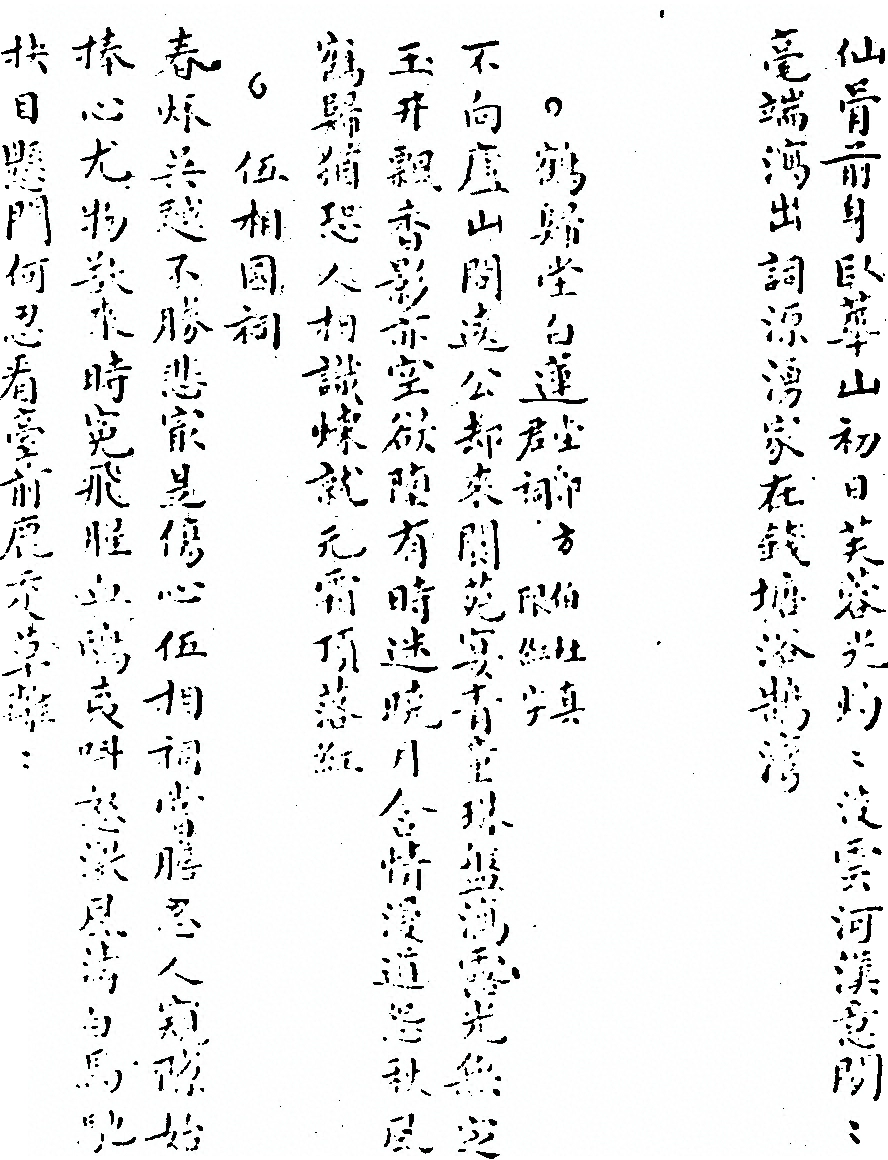 仙骨前身臥華山初日芙蓉光灼〻凌雲河漢意閒〻
毫端瀉出詞源湧家在錢塘浴鵠灣
○鶴歸堂白蓮坐邵方伯杜真君詞限紅字
不向廬山問遠公却來閬苑冥青童珠盤瀉露光無定
玉井飄香影亦空欲墮有時迷曉月含情漫道怨秋風
鶴歸猶恐人相識燦就元霜頂落紅
○伍相國祠
春煙吳越不勝悲最是傷心伍相祠嘗膽忍人窺隙始
捧心尤物獻來時冤飛腥血鴟夷叫怒激風濤白馬馳
抉目懸門何忍看臺前鹿走草離〻